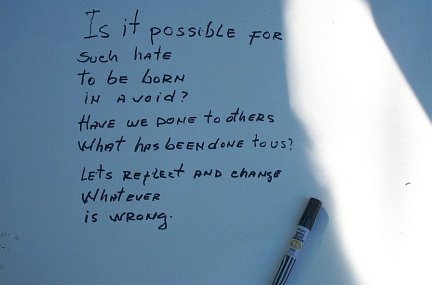 Is it possible for
such hate
to be born
in a void?
Have we done to others
what has been done to us?
Lets reflect and change
whatever
is wrong.